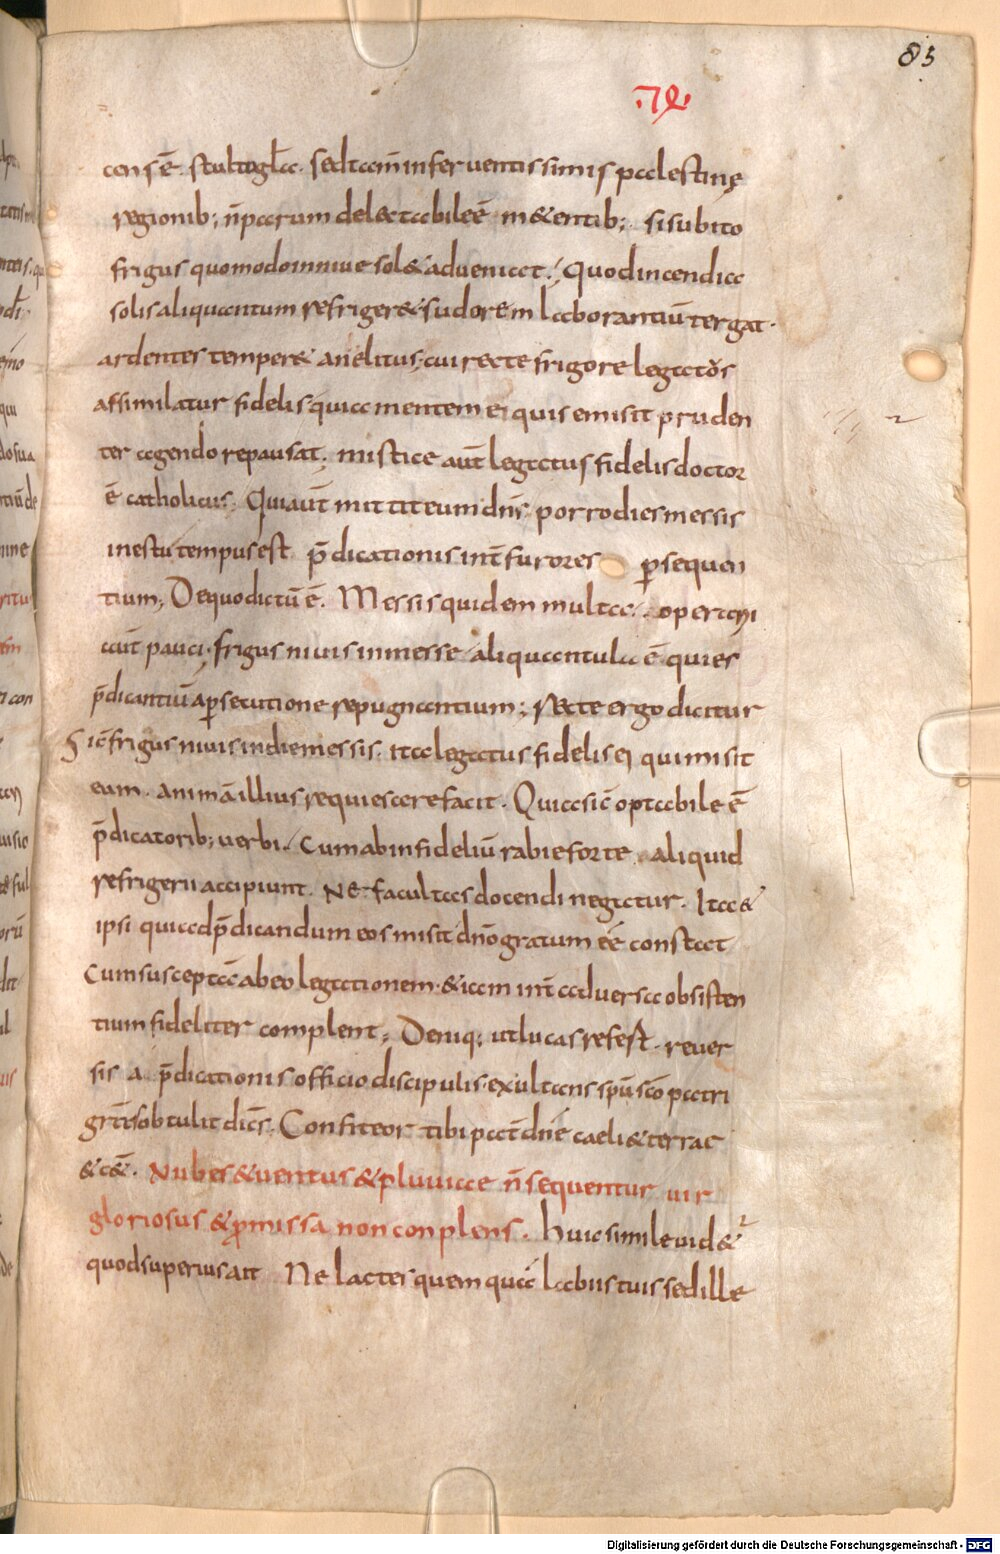 83
consē. stultaglaꝉ. sedtam̄ inferventissimis palestinę
regionib; n̄parum delectabileē m&entib; sisubito
frigus quomodoinnive sol& adveniat. Quodincendia
solisaliquantum refriger& sudorem laborantiū tergat.
ardenter temper& anelitus, cui recte frigore legator
assimilatur fidelis quia mentem ei qui se misit pruden
ter agendo repausat; mistice aut̄ legatus fidelis doctor
ē catholicus. Quiaut̄ mittit eum dn̄s porro dies messis
inestu tempus est p̄dicationis int̄ furores ꝑsequen
tium; Dequo dictū ē. Messis quidem multa. operarii
aut̄ pauci. frigus nivis inmesse aliquantula ē quies
p̄dicantiū aꝑsecutione repugnantium; recte ergo dicitur
Sic̄ frigus nivis indie messis. ita legatus fidelis ei qui misit
eam. animā illius requiescere facit. Quia sic̄ optabile ē
p̄dicatorib; verbi. Cum ab infideliū rabie forte aliquid
refrigerii accipiunt. Ne facultas docendi negetur. Ita &
ipsi quiad p̄dicandum eos misit dn̄o gratum eē constat
Cum susceptā ab eo legationem &iam int̄ adversa obsisten
tium fideliter complent; Deniq; ut lucas refert. rever
sis a p̄dicationis officio discipulis exultans spū sc̄o patri
grat̄s obtulit dic̄s. Confiteor tibi pat̄ dn̄e caeli & terrae
&c&. Nubes & ventus & pluviae n̄ sequentur vir
gloriosus & ꝓmissa non conplens. huic simile vid&ur
quod superius ait Ne lactes quemquā labiis tuis sed ille
Digitalisierung gefördert durch die Deutsche Forschungsgemeinschaft - DFG